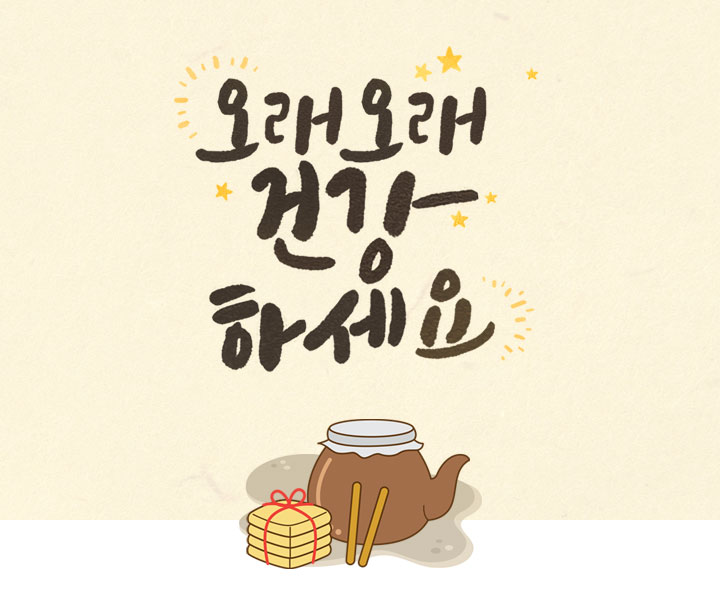 오래오래
건강
하세요